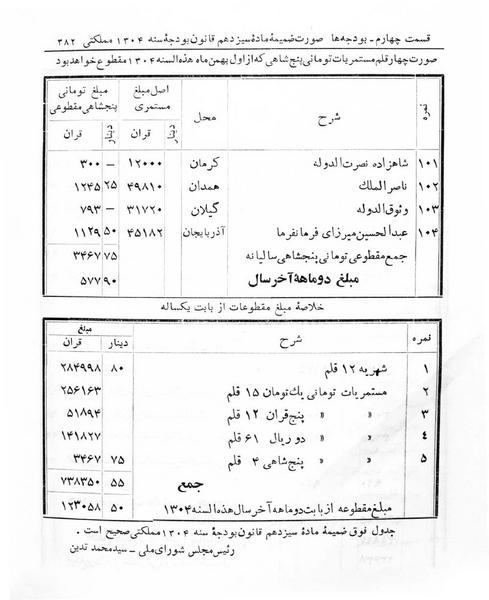 قسمت چهارم - بودجه‌ها صورت ضمیمهٔ مادهٔ سیزدهم قانون بودجهٔ سنه ۱۳۰۴ مملکتی ۳۸۲
صورت چهار قلم مستمریات تومانی پنج‌شاهی که از اول بهمن‌ماه هذه‌السنه ۱۳۰۴ مقطوع خواهد بود
نمره شرح محل اصل مبلغ مستمری مبلغ تومانی پنجشاهی مقطوعی
دینار قران دینار قران
۱۰۱ شاهزاده نصرت الدوله کرمان ۱۲۰۰۰ — ۳۰۰
۱۰۲ ناصر الملک همدان ۴۹۸۱۰ ۲۵ ۱۲۴۵
۱۰۳ وثوق الدوله گیلان ۳۱۷۲۰ — ۷۹۳
۱۰۴ عبدالحسین میرزای فرمانفرما آذربایجان ۴۵۱۸۲ ۵۰ ۱۱۲۹
جمع مقطوعی تومانی پنجشاهی سالیانه ۷۵ ۳۴۶۷
مبلغ دوماههٔ آخر سال ۹۰ ۵۷۷
خلاصهٔ مبلغ مقطوعات از بابت یکساله
نمره شرح دینار مبلغ قران
۱ شهریه ۱۲ قلم ۸۰ ۲۸۴۹۹۸
۲ مستمریات تومانی یک تومان ۱۵ قلم ۲۵۶۱۶۳
۳ » » پنج قران ۱۲ قلم ۵۱۸۹۴
۴ » » دو ریال ۶۱ قلم ۱۴۱۸۲۷
۵ » » پنج شاهی ۴ قلم ۷۵ ۳۴۶۷
جمع ۵۵ ۷۳۸۳۵۰
مبلغ مقطوعه از بابت دوماهه آخر سال هذه السنه ۱۳۰۴ ۵۰ ۱۲۳۰۵۸
جدول فوق ضمیمهٔ مادهٔ سیزدهم قانون بودجهٔ سنه ۱۳۰۴ مملکتی صحیح است .
رئیس مجلس شورای ملی - سید محمد تدین